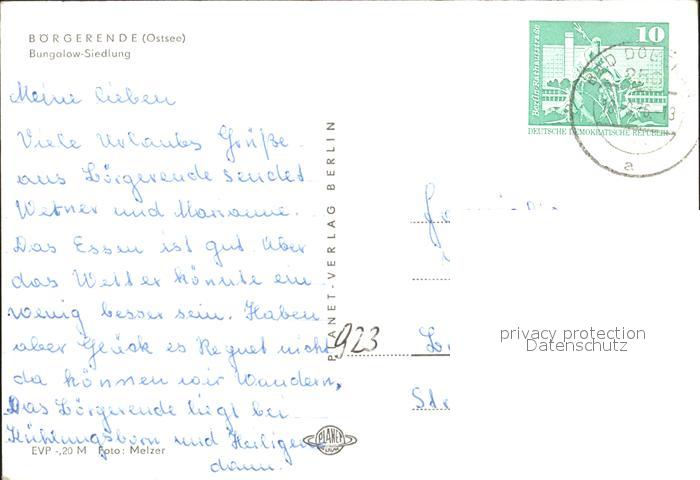 BÖRGERENDE (Ostsee)
Bungalow-Siedlung
Meine lieben
Viele Urlaubs Grüße
aus Börgerende sendet
Werner und Marianne.
Das Essen ist gut über
das Wetter könnte ein
wenig besser sein. Haben
aber Glück es Regnet nicht
da können wir Wandern,
Das Börgerende liegt bei
Kühlungsborn und Heiligen
damm.
EVP -,20 M Foto: Melzer
PLANET-VERLAG BERLIN
PLANET
923
Berlin-Rathausstraße
10
DEUTSCHE DEMOKRATISCHE REPUBLIK
BAD DO
a
privacy protection
Datenschutz